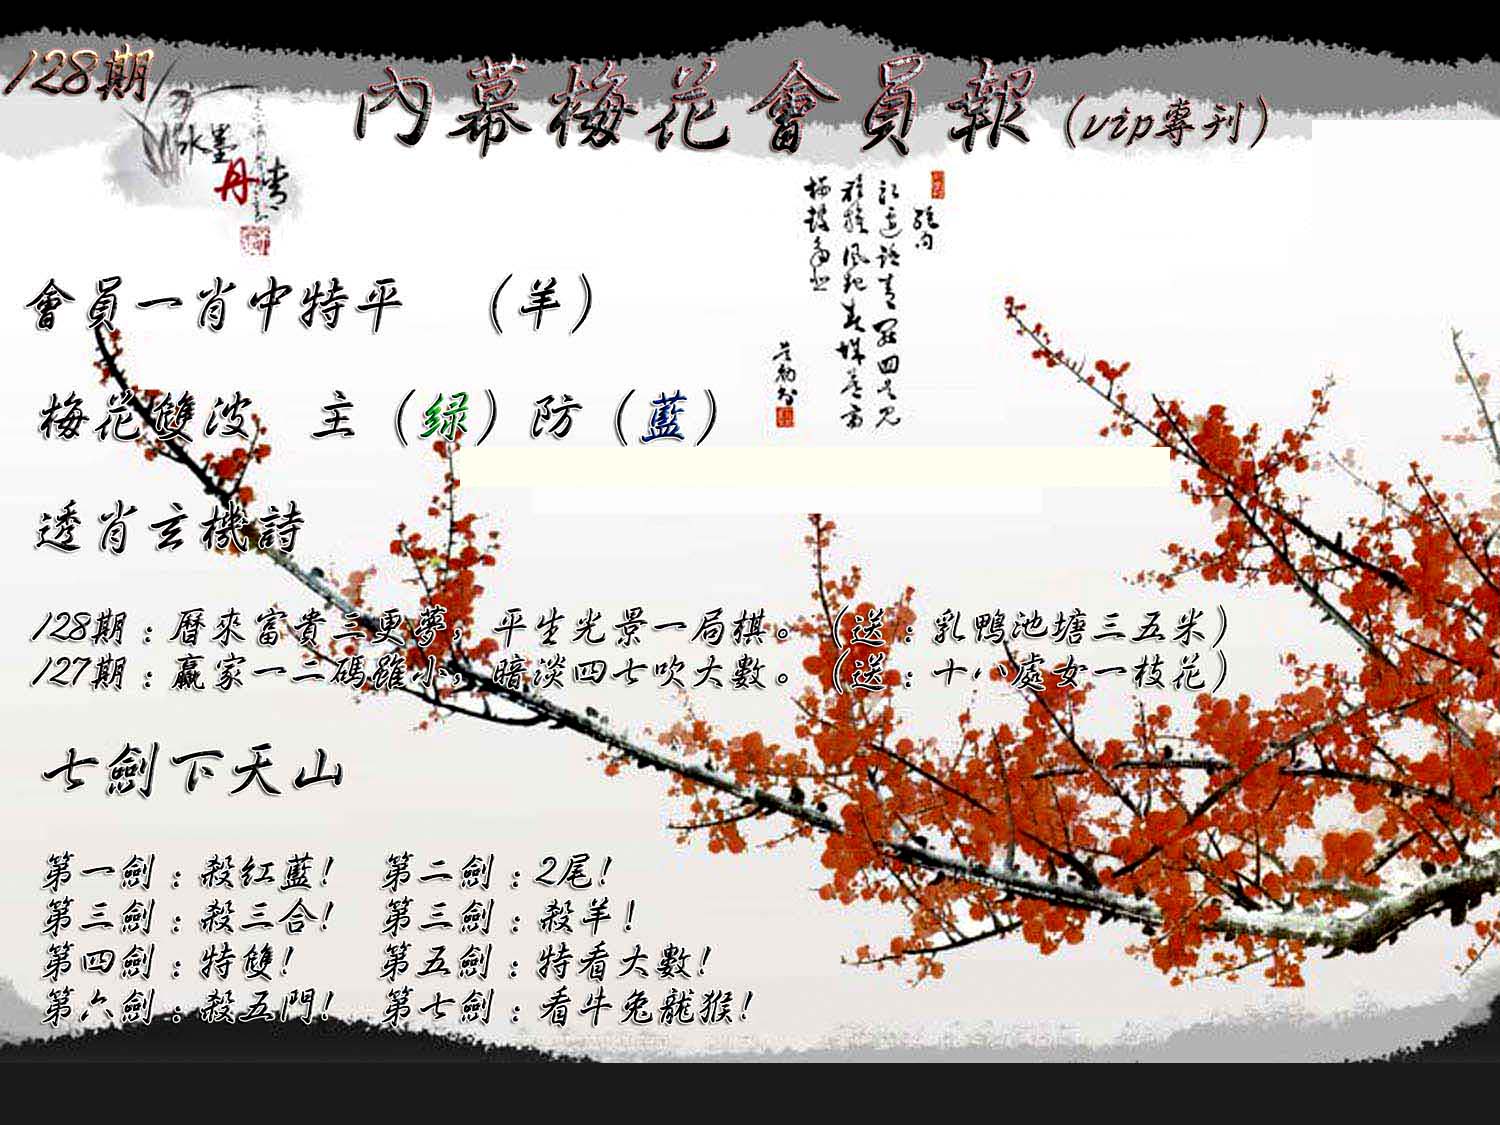 128期
內幕梅花會員報（vip專刊）
水墨
丹青
會員一肖中特平 （羊）
梅花雙波 主（绿）防（藍）
透肖玄機詩
128期：曆來富貴三更夢，平生光景一局棋。（送：乳鴨池塘三五米）
127期：贏家一二碼雖小，暗淡四七吹大數。（送：十八處女一枝花）
七劍下天山
第一劍：殺紅藍！ 第二劍：2尾！
第三劍：殺三合！ 第三劍：殺羊！
第四劍：特雙！ 第五劍：特看大數！
第六劍：殺五門！ 第七劍：看牛兔龍猴！